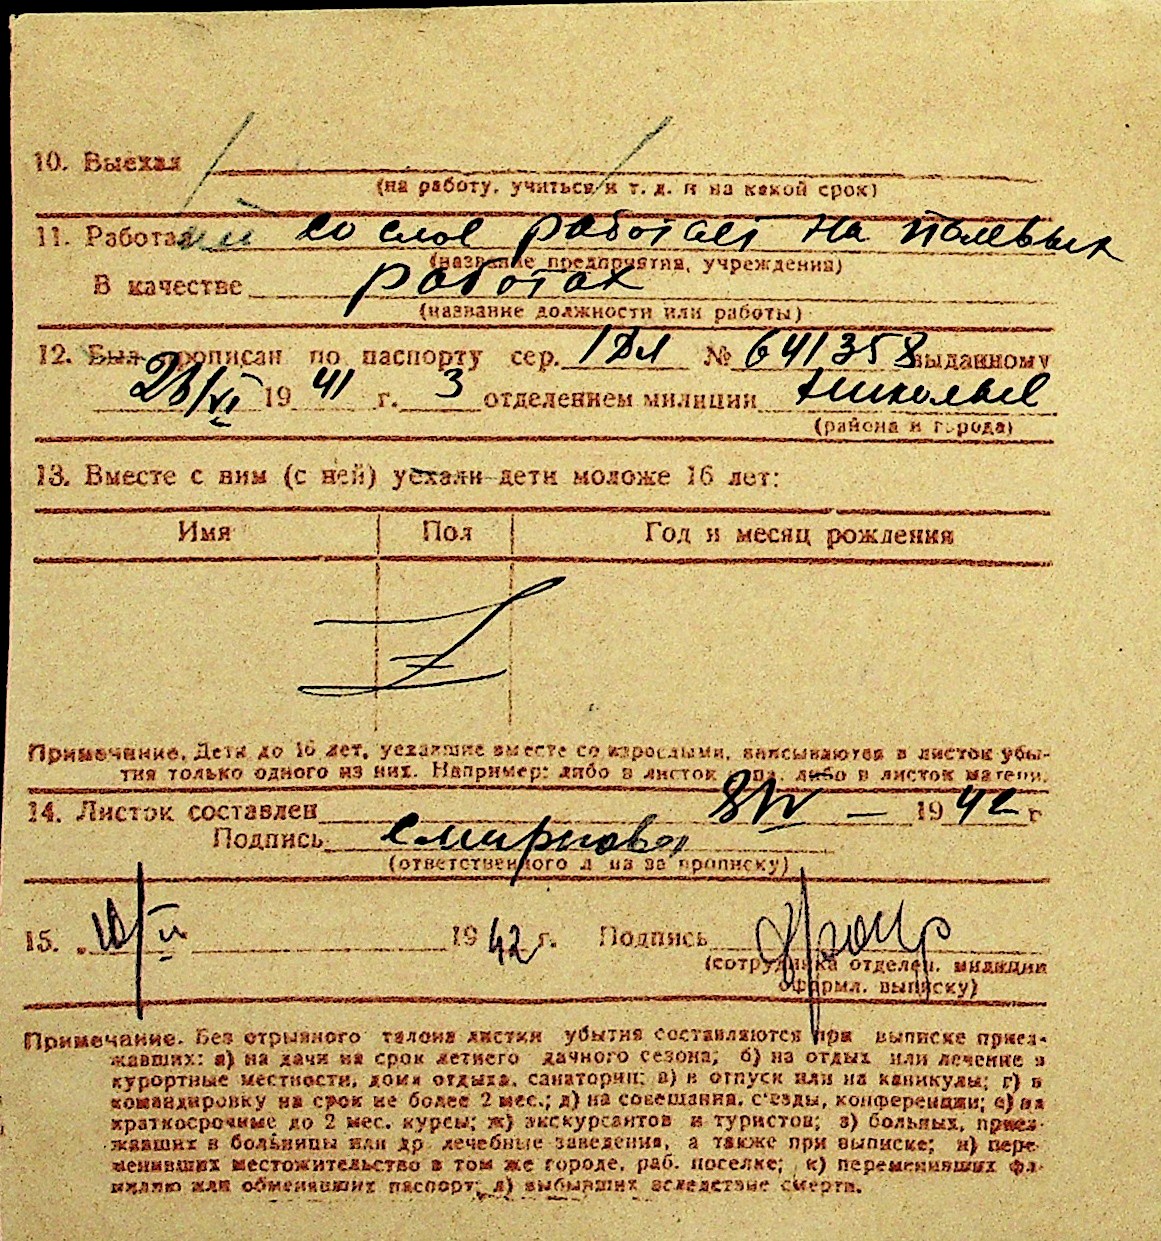 10. Выехал
(на работу, учиться и т. д. и на какой срок)
11. Работа со слов работает на полевых
(название предприятия, учреждения)
В качестве работах
(название должности или работы)
12. Был прописан по паспорту сер. № 641358 выданному
23/VI 1941 г. 3 отделением милиции
(района и города)
13. Вместе с ним (с ней) уехали дети моложе 16 лет:
Имя Пол Год и месяц рождения
Примечание. Дети до 16 лет, уехавшие вместе со взрослыми, вписываются в листок убы-
тия только одного из них. Например: либо в листок отца, либо в листок матери.
14. Листок составлен 8/IV — 1942 г
Подпись Смирнова
(ответственного лица за прописку)
15. 1942 г. Подпись
(сотрудника отделен. милиции
оформл. выписку)
Примечание. Без отрывного талона листки убытия составляются при выписке приез-
жавших: а) на дачи на срок летнего дачного сезона; б) на отдых или лечение в
курортные местности, дома отдыха, санатории; в) в отпуск или на каникулы; г) в
командировку на срок не более 2 мес.; д) на совещания, с'езды, конференции; е) на
краткосрочные до 2 мес. курсы; ж) экскурсантов и туристов; з) больных, приез-
жавших в больницы или др лечебные заведения, а также при выписке; и) пере-
менивших местожительство в том же городе, раб. поселке; к) переменивших фа-
милию или обменявших паспорт; л) выбывших вследствие смерти.